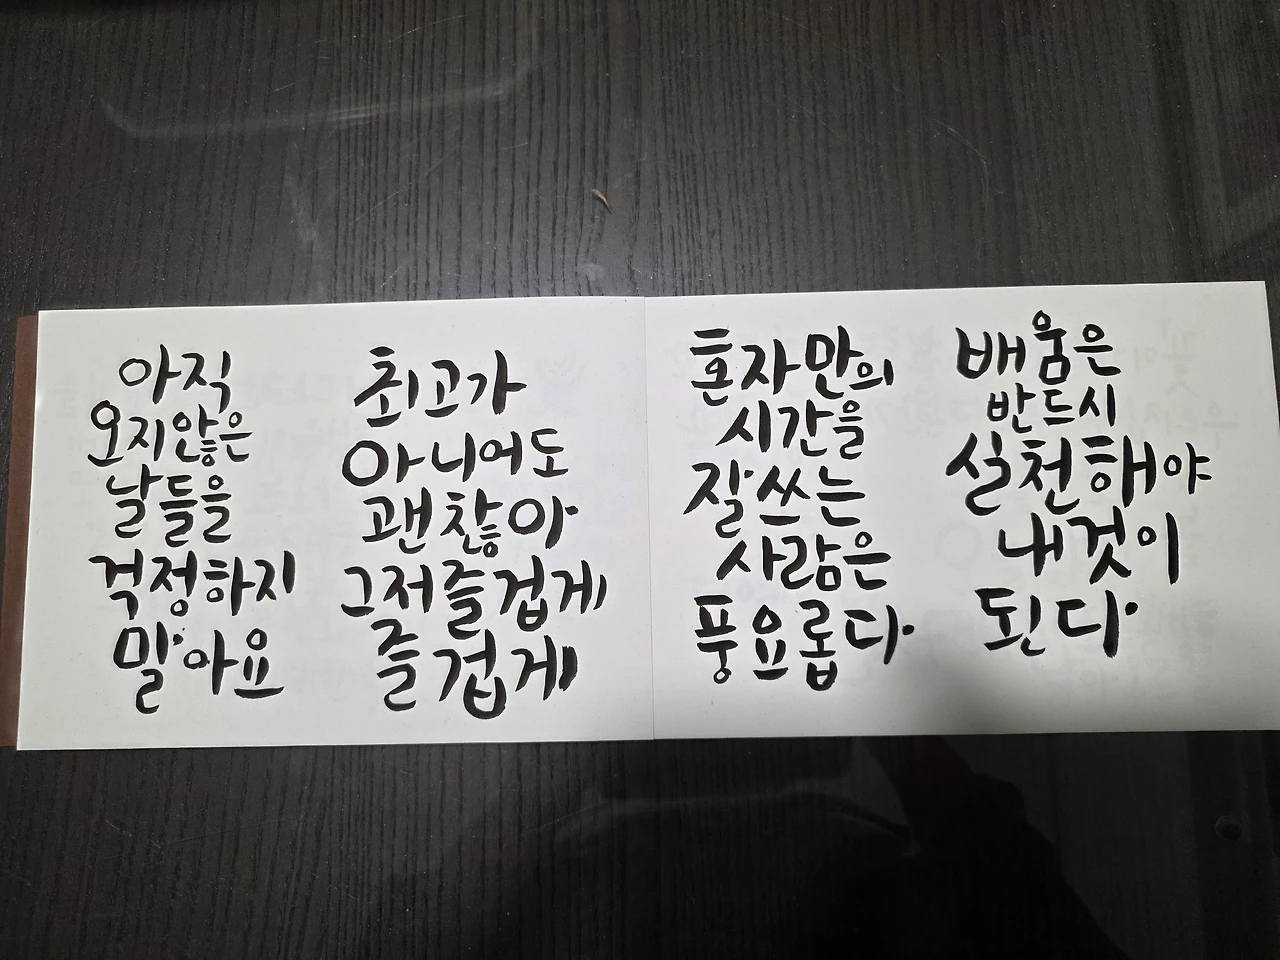 아직
오지않은
날들을
걱정하지
말아요
최고가
아니어도
괜찮아
그저즐겁게
즐겁게
혼자만의
시간을
잘쓰는
사람은
풍요롭다
배움은
반드시
실천해야
내것이
된다